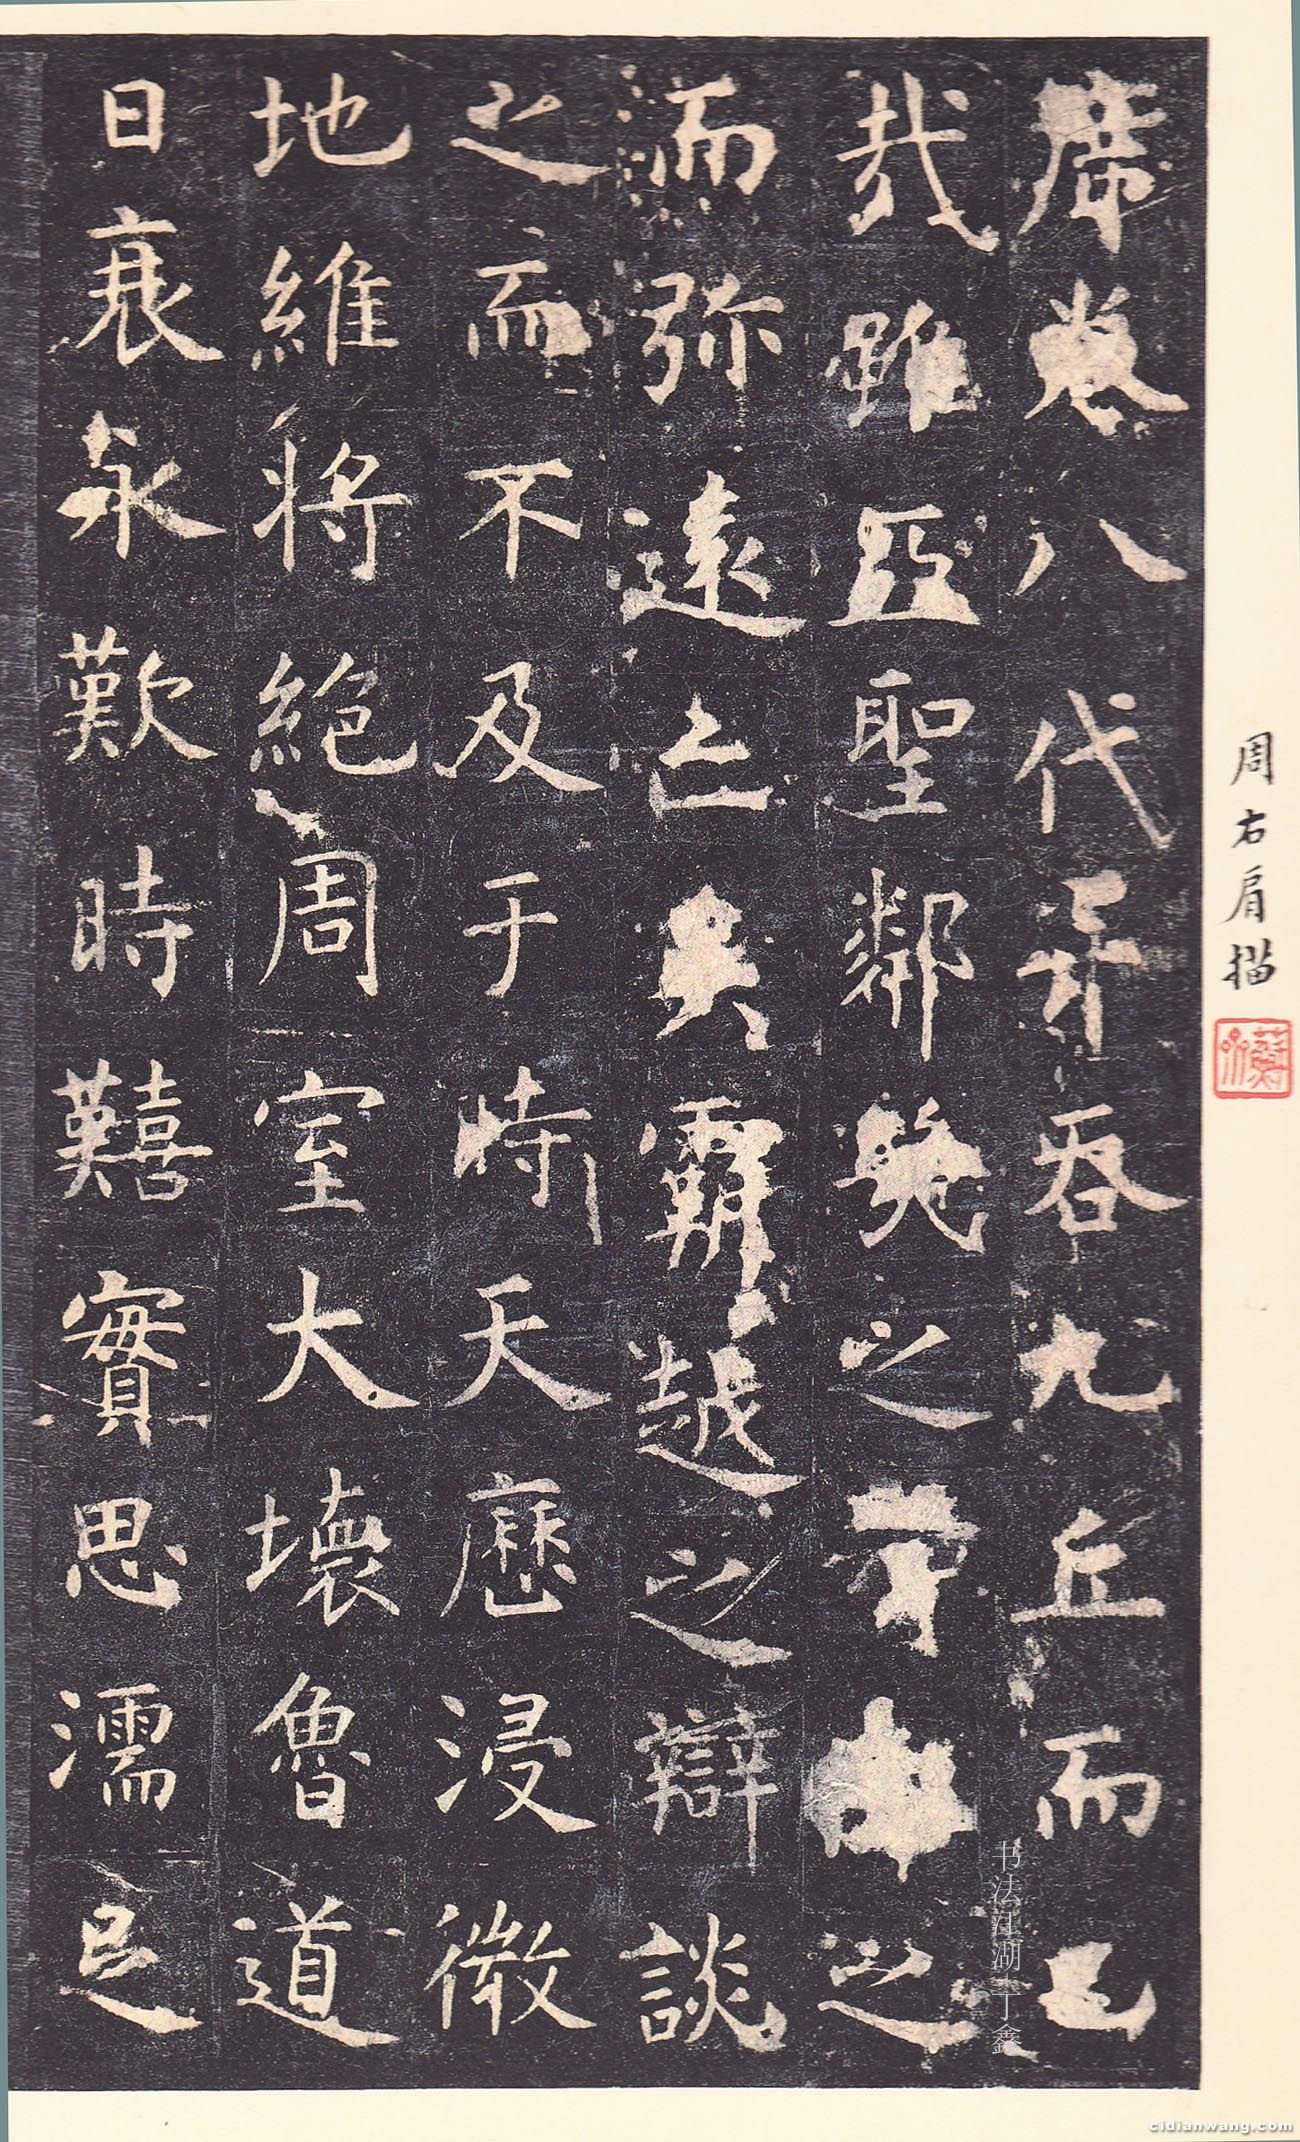 周右肩描
席卷八代并吞九丘而已
哉雖亞聖鄰幾之智仰之
而弥遠亡吳霸越之辯談
之而不及于時天歷浸微
地維將絕周室大壞魯道
日衰永歎時囏實思濡足
书法江湖丁鑫
cidianwang.com